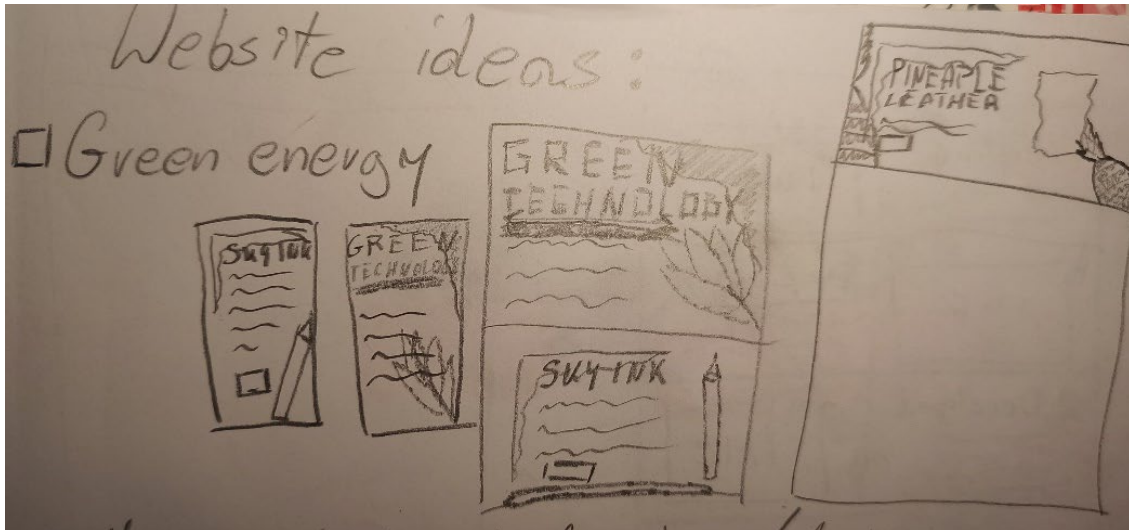 Website ideas:
Green energy
SKY INK
GREEN
TECHNOLOGY
GREEN
TECHNOLOGY
SKY-INK
PINEAPLE
LEATHER